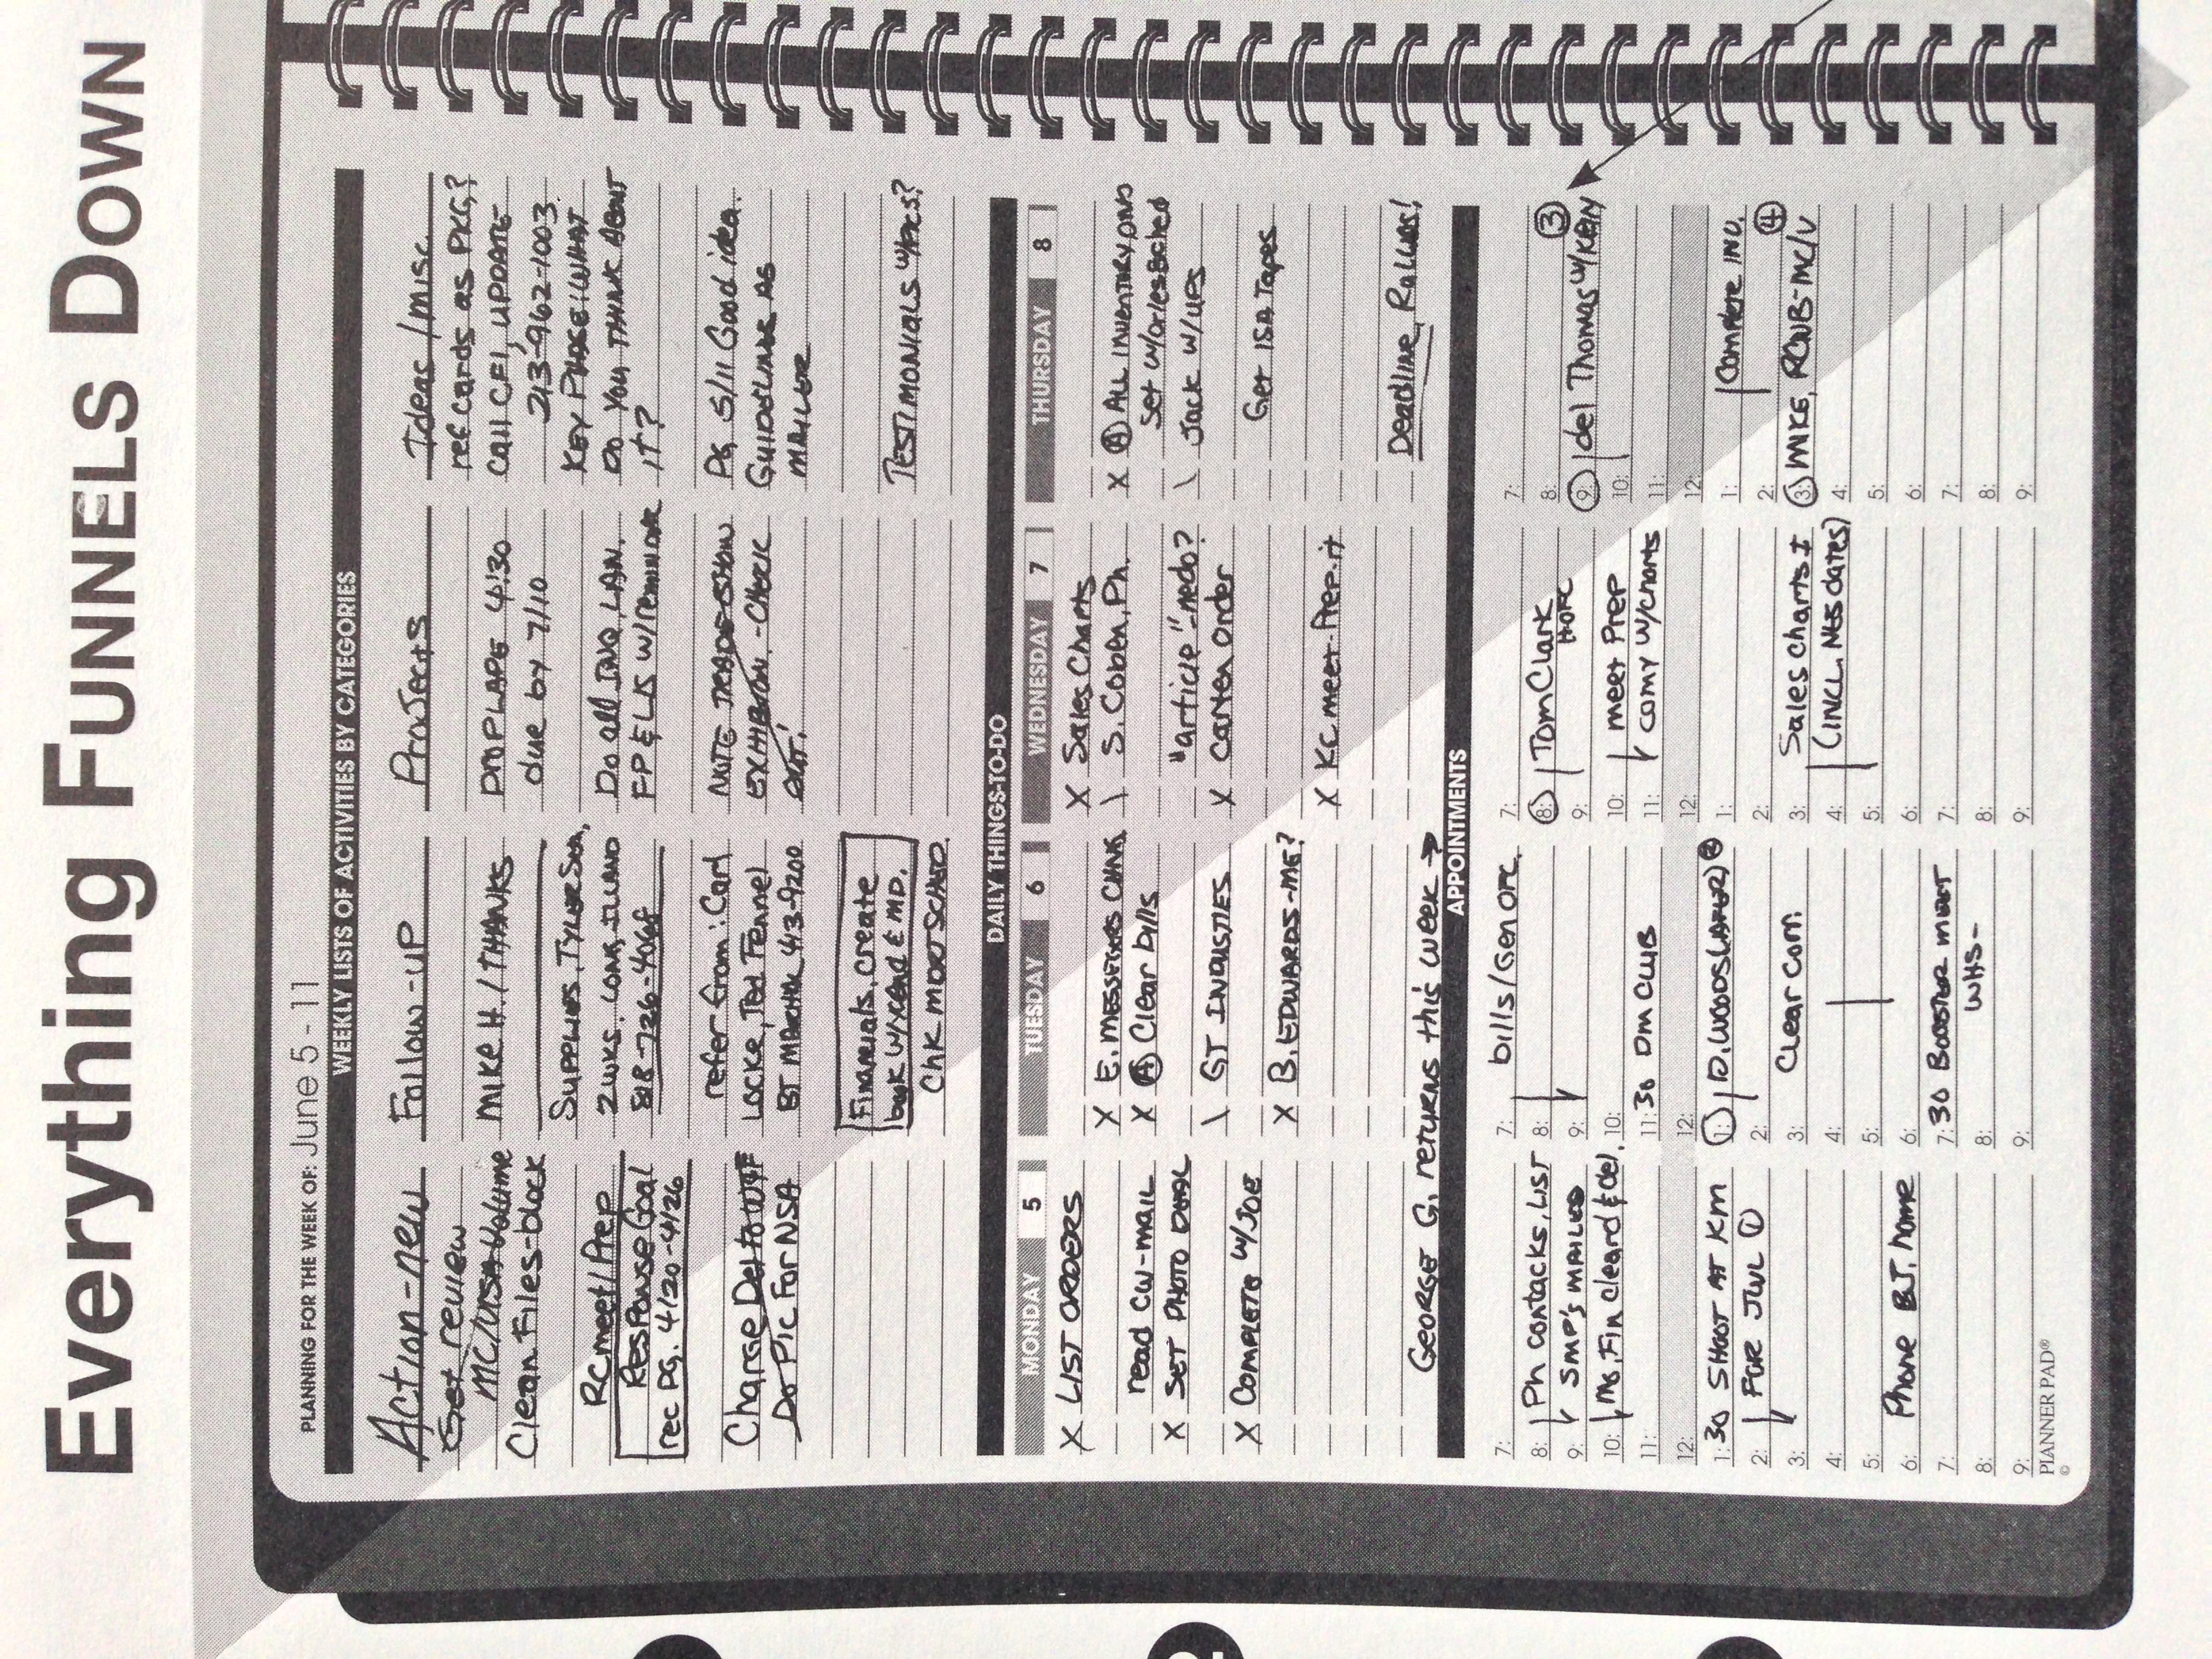 Everything FUNNELS DOWN
PLANNING FOR THE WEEK OF: June 5 - 11
WEEKLY LISTS OF ACTIVITIES BY CATEGORIES
Action-new
Get review
MC/VISA Volume
Clean Files-black
RC meet/Prep
Response Goal
rec PG. 4/20-4/26
Charge Del to
Do Pic For NSA
Follow-up
MIKE H. / THANKS
SUPPLIES, TYLER
2 WKS. LONG ISLAND
818-726-4068
refer from: Carl
LOCKE, Ted Fennel
BT MARINA 413-9200
Financials, create
book W/ & MD.
Chk MOTO SCHAD
ProJects
PROP LAPE 4:30
due by 7/10
Do all INQ, LAN,
FP & LIS w/reminder
NOTE TRADE SHOW
EXHIBITION - CHECK
OUT!
Ideas/misc.
ref cards as PKG?
Call CFI, UPDATE
213-962-1003
KEY PHRASE: WHAT
DO YOU THINK ABOUT
IT?
PG 5/11 Good idea.
GUIDELINES AS
MAILER
TESTIMONIALS W/PICS?
DAILY THINGS-TO-DO
MONDAY 5
X LIST ORDERS
read CW-mail
X SET PHOTO
X COMPLETE W/JOE
TUESDAY 6
X E. MESSEKES
X A Clear bills
\ GT INDUSTIES
X B. EDWARDS-ME?
WEDNESDAY 7
X Sales Charts
\ S. Coben, Ph.
"article"-redo?
X Carten Order
X KC meet-Prep.it
THURSDAY 8
X A ALL INVENTRY
Set w/
\ Jack w/UPS
Get ISA Tapes
George G. returns this week →
Deadline,
APPOINTMENTS
7:
8: Ph contacks, LIST
9: SMP's MAILED
10: MS. Fin cleard & del.
11:
12:
1: 30 SHOOT AT KM
2: FOR JWL 1
3:
4:
5:
6: Phone B.J. home
7:
8:
9:
7: bills/Gen OFC.
8:
9:
10:
11: 30 DM CLUB
12:
1: D. WOODS (LAFUR) 2
2:
3: Clear Com.
4:
5:
6:
7: 30 BOOSTER MEET
8: WHS-
9:
7:
8: Tom Clark
9: H-OFC
10: meet Prep
11: comy w/charts
12:
1:
2:
3: Sales Charts I
4: (INCL. NLS dates)
5:
6:
7:
8:
9:
7:
8: 3
9: del Thomas w/KEN
10:
11:
12:
1: Complete INV.
2: 4
3: MIKE, RCNB-MC/V
4:
5:
6:
7:
8:
9:
© PLANNER PAD®